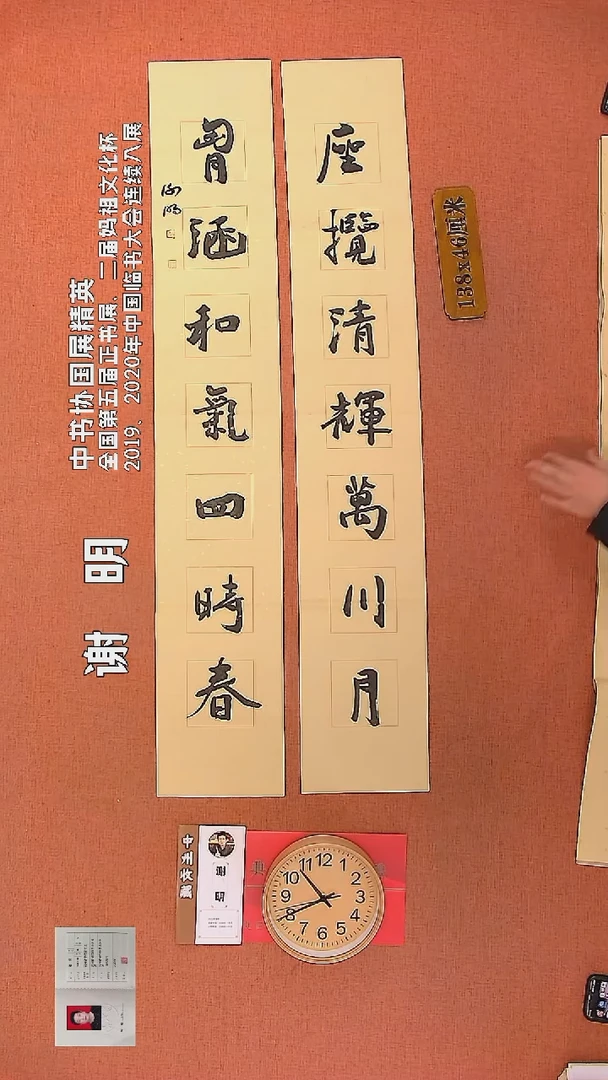 座攬清輝萬川月
胷涵和氣四時春
谢明
138x40厘米
中书协国展精英
全国第五届正书展、二届妈祖文化杯
2019、2020年中国临书大会连续入展
谢 明
谢 明
12
1
2
3
4
5
6
7
8
9
10
11